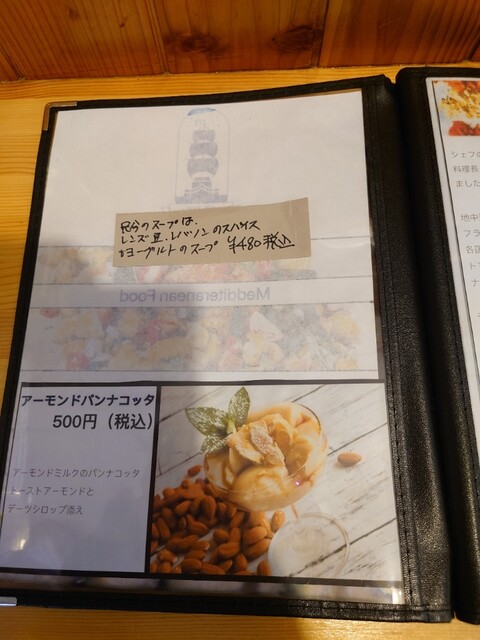 レンズ豆、レバノンのスパイス
ヨーグルトのスープ ¥480税込
Mediteranean Food
アーモンドパンナコッタ
500円（税込）
アーモンドミルクのパンナコッタ
トーストアーモンドと
デーツシロップ添え
シェフの
料理長
ました
地中
フラ
各国